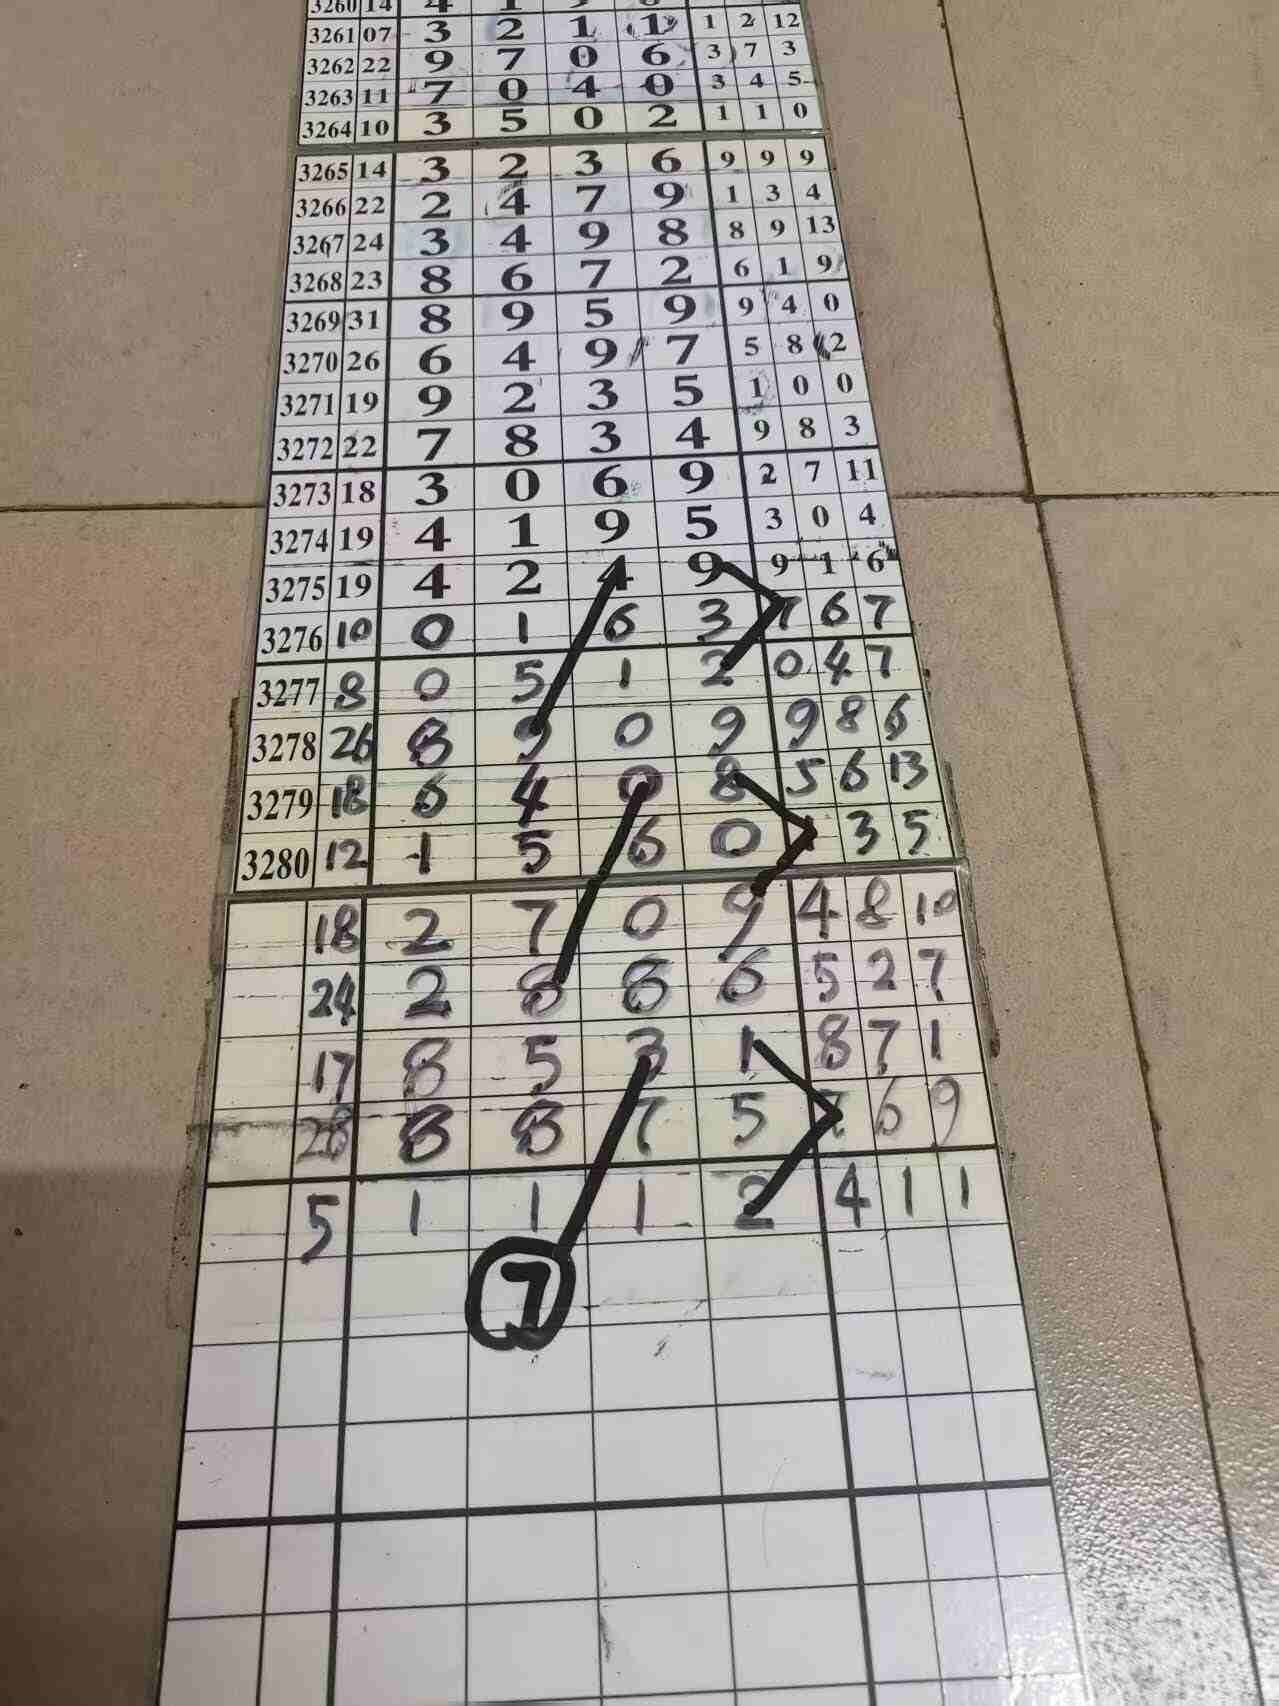 3260 14 4 1 9
3261 07 3 2 1 1 1 2 12
3262 22 9 7 0 6 3 7 3
3263 11 7 0 4 0 3 4 5
3264 10 3 5 0 2 1 1 0
3265 14 3 2 3 6 9 9 9
3266 22 2 4 7 9 1 3 4
3267 24 3 4 9 8 8 9 13
3268 23 8 6 7 2 6 1 9
3269 31 8 9 5 9 9 4 0
3270 26 6 4 9 7 5 8 2
3271 19 9 2 3 5 1 0 0
3272 22 7 8 3 4 9 8 3
3273 18 3 0 6 9 2 7 11
3274 19 4 1 9 5 3 0 4
3275 19 4 2 4 9 9 1 6
3276 10 0 1 6 3 7 6 7
3277 8 0 5 1 2 0 4 7
3278 26 8 9 0 9 9 8 6
3279 18 6 4 0 8 5 6 13
3280 12 1 5 6 0 1 3 5
18 2 7 0 9 4 8 10
24 2 8 8 6 5 2 7
17 8 5 3 1 8 7 1
28 8 8 7 5 7 6 9
5 1 1 1 2 4 1 1
7